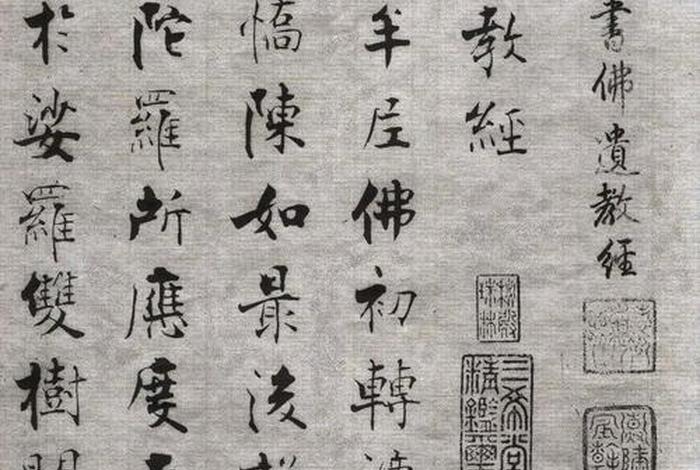 書佛遺教經
教經
三希堂精鑑璽
牟尼佛初轉
憍陳如最後
陀羅所應度
於娑羅雙樹